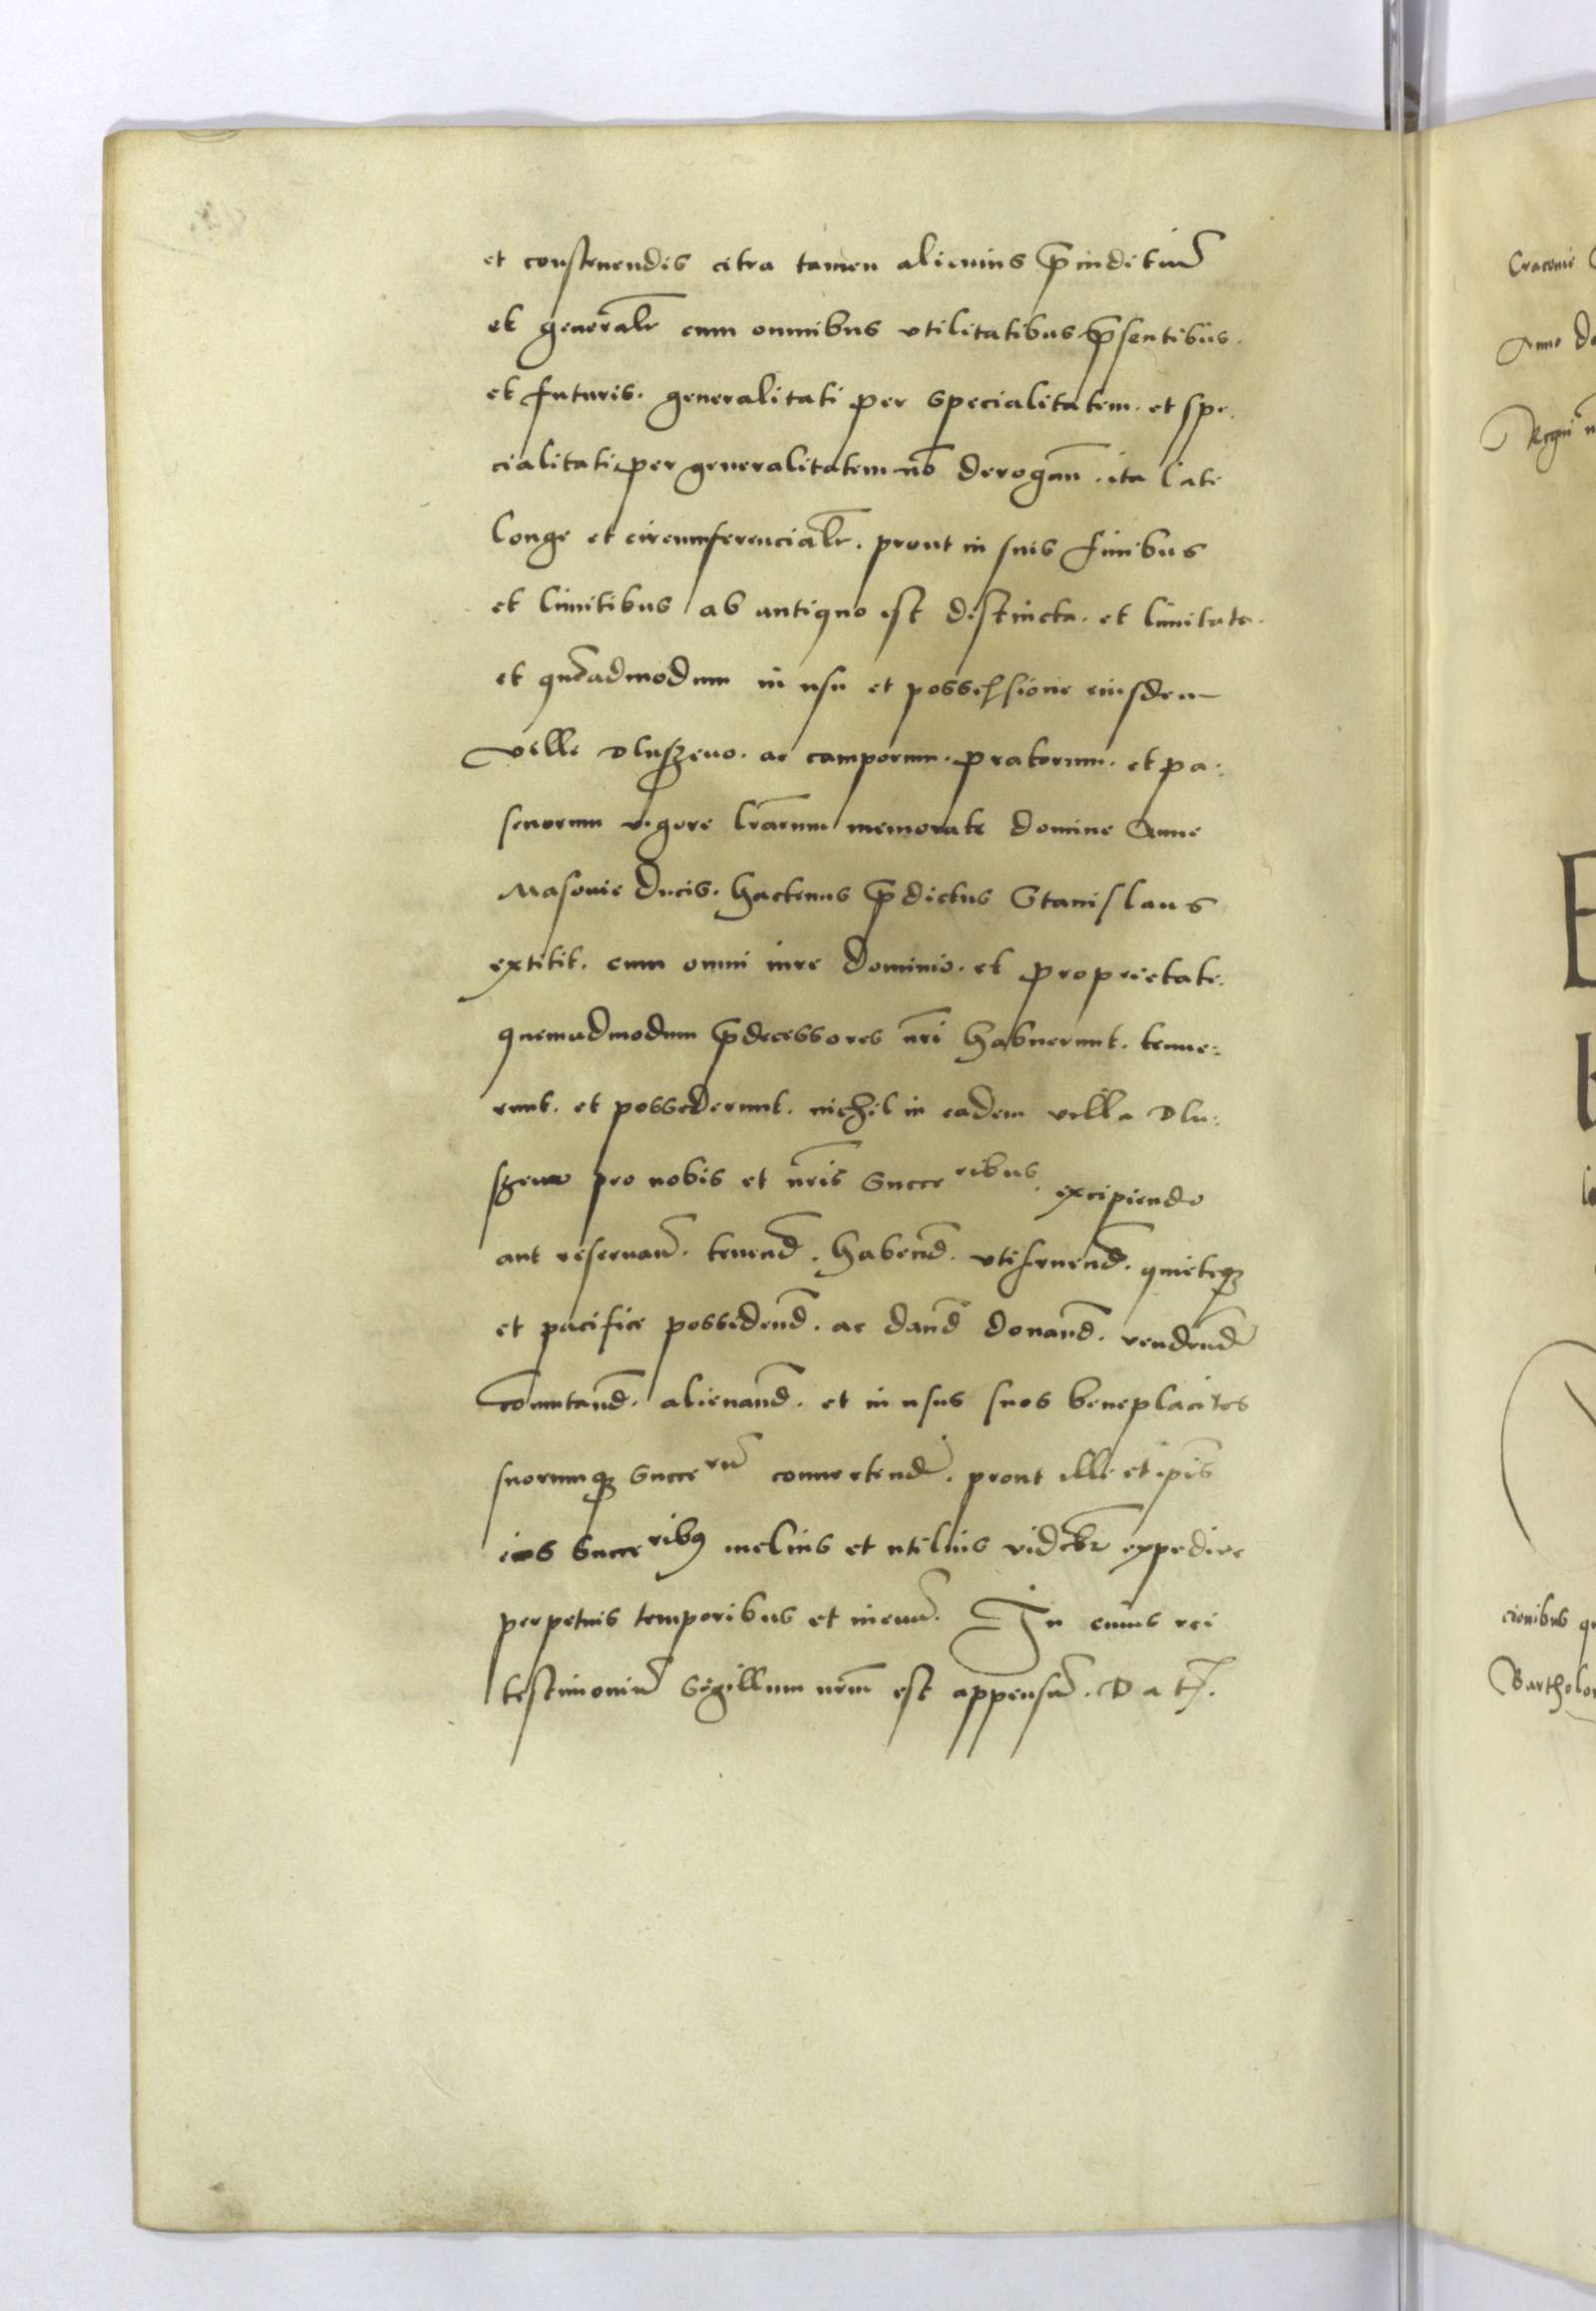 et construendis citra tamen alicuius p̄iuditiu͂
et generalr̄ cum omnibus vtilitatibus p̄sentibus.
et futuris. generalitati per specialitatem. et spe.
cialitati per generalitatem no͂ derogan̄. ita late
longe et circumferencialr̄. prout in suis finibus
et limitibus ab antiquo est distincta. et limitata.
et que͂admodum in usu et possessione eiusdem
ville Dluszeuo. ac camporum. pratorum. et pa:
scuorum vigore lr̄arum memorate domine Anne
Masouie ducis. hactenus p̄dictus Stanislaus
extitit. cum omni iure dominio. et proprietate.
quemadmodum p̄decessores nr̄i habuerunt. tenue:
runt. et possederunt. nichil in eadem villa Dlu:
szeuo pro nobis et nr̄is Succeribus. excipiendo
aut reseruan̄. tenend̄. habend̄. vtifruend̄. quieteqꝫ
et pacifice possidend̄. ac dand̄ donand̄. vendend̄
Comutand̄. alienand̄. et in usus suos beneplacitos
suorumqꝫ Succeru͂ conuertend̄. prout illi et ip̄is
ius Succeribꝰ melius et utilius videbr̄ expedire
perpetuis temporibus et in euu͂. In cuius rei
testimoniu͂ Sigillum nr̄m est appensu͂. Dat̄.
Cracouie
Anno do
Regni n
cionibus qu
Bartholo